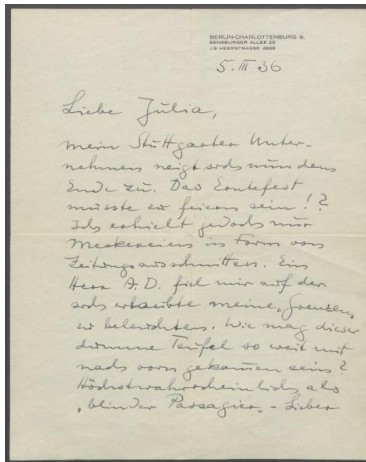 BERLIN-CHARLOTTENBURG 9,
SENSBURGER ALLEE 25
J 9 HEERSTRASSE
5. III 36
Liebe Julia,
mein Stuttgarter Unter-
nehmen neigt sich nun dem
Ende zu. Das Erntefest
müsste zu feiern sein!?
Ich erhielt jedoch nur
Meckereien in Form von
Zeitungsausschnitten. Ein
Herr A. D. fiel mir auf der
sich erlaubte meine „Grenzen„
zu beleuchten. Wie mag dieser
dumme Teufel so weit mit
nach vorn gekommen sein?
Höchstwahrscheinlich als
„blinder Passagier„ - Lieber